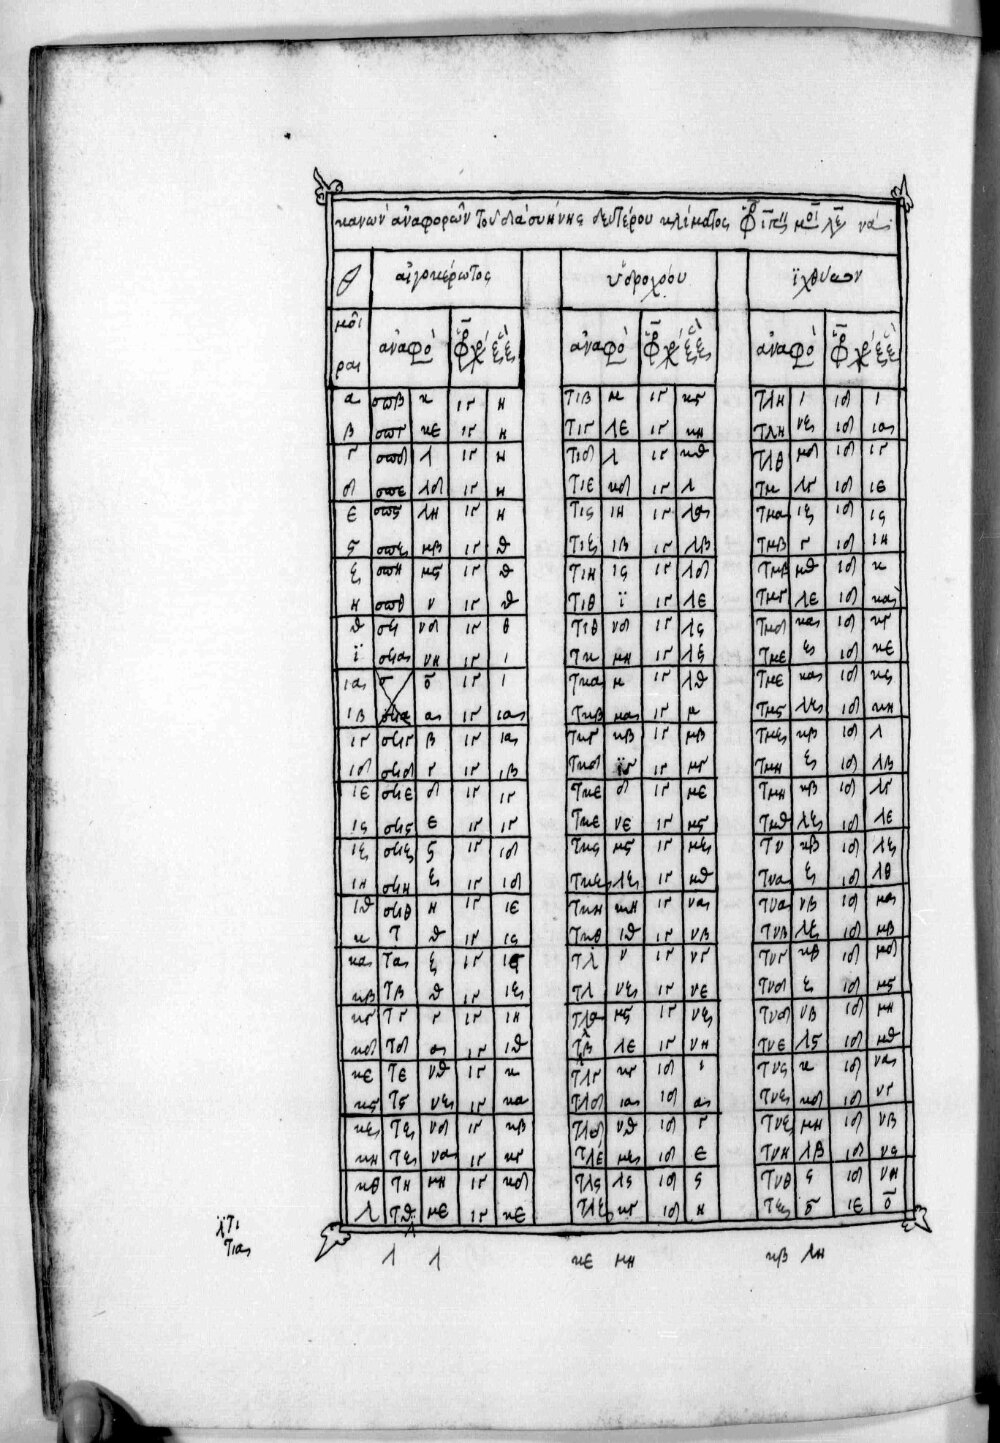 κανων αναφορων του δια συηνης δευτερου κλιματος
αιγοκερωτος υδροχοου ιχθυων
μοι
ραι αναφο αναφο αναφο
α σπβ κ ιγ η τιβ μ ιγ κϛ τλη ι ιδ ι
β σπγ κε ιγ η τιγ λε ιγ κη τλη νζ ιδ ια
γ σπδ λ ιγ η τιδ λ ιγ κθ τλθ μδ ιδ ιγ
δ σπε λδ ιγ η τιε κδ ιγ λ τμ λγ ιδ ιε
ε σπϛ λη ιγ η τιϛ ιη ιγ λα τμα ιζ ιδ ιϛ
ϛ σπζ μβ ιγ θ τιζ ιβ ιγ λβ τμβ γ ιδ ιη
ζ σπη μϛ ιγ θ τιη ιϛ ιγ λδ τμβ μθ ιδ κ
η σπθ ν ιγ θ τιθ ϊ ιγ λε τμγ λε ιδ κα
θ σϟ νδ ιγ θ τιθ νδ ιγ λϛ τμδ κα ιδ κγ
ϊ σϟα νη ιγ ι τκ μη ιγ λζ τμε ζ ιδ κε
ια ο ιγ ι τκα μ ιγ λθ τμε να ιδ κϛ
ιβ α ιγ ια τκβ μα ιγ μ τμϛ λζ ιδ κη
ιγ σϟγ β ιγ ια τκγ κβ ιγ μβ τμζ κβ ιδ λ
ιδ σϟδ γ ιγ ιβ τκδ ϊγ ιγ μγ τμη ζ ιδ λβ
ιε σϟε δ ιγ ιγ τκε δ ιγ με τμη νβ ιδ λγ
ιϛ σϟϛ ε ιγ ιγ τκε νε ιγ μϛ τμθ λζ ιδ λε
ιζ σϟζ ϛ ιγ ιδ τκϛ μϛ ιγ μζ τν κβ ιδ λζ
ιη σϟη ζ ιγ ιδ τκζ λζ ιγ μθ τνα ζ ιδ λθ
ιθ σϟθ η ιγ ιε τκη κη ιγ να τνα νβ ιδ μα
κ τ θ ιγ ιϛ τκθ ιθ ιγ νβ τνβ λζ ιδ μβ
κα τα ζ ιγ ιϛ τλ ν ιγ νγ τνγ κβ ιδ μδ
κβ τβ θ ιγ ιζ τλ νζ ιγ νε τνδ ζ ιδ μϛ
κγ τγ γ ιγ ιη τλα μϛ ιγ νζ τνδ νβ ιδ μη
κδ τδ α ιγ ιθ τλβ λε ιγ νη τνε λϛ ιδ μθ
κε τε νθ ιγ κ τλγ κγ ιδ ι τνϛ κ ιδ να
κϛ τϛ νζ ιγ κα τλδ ια ιδ α τνζ κδ ιδ νγ
κζ τζ νδ ιγ κβ τλδ νθ ιδ γ τνζ μη ιδ νβ
κη τζ να ιγ κγ τλε μζ ιδ ε τνη λβ ιδ νϛ
κθ τη μη ιγ κδ τλϛ λϛ ιδ ϛ τνθ ϛ ιδ νη
λ τθ με ιγ κε τλζ κγ ιδ η τξ ο ιε ο
τι
τια
λ λ κε μη κβ λη